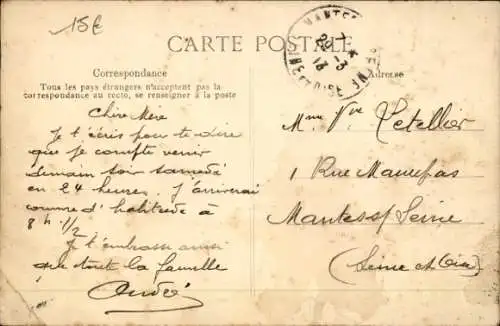 15€
CARTE POSTALE
MANTES
7 *
28 -3
13
SEINE ET OISE
Correspondance
Tous les pays étrangers n'acceptent pas la
correspondance au recto, se renseigner à la poste
Adresse
Chère Mère
Je t'écris pour te dire
que je compte venir
demain soir samedi
en 24 heures. J'arriverai
comme d'habitude à
8h 1/2
Je t'embrasse ainsi
que toute la famille
André
Mme Vve Letellier
1 Rue Maurepas
Mantes s/ Seine
(Seine et Oise)